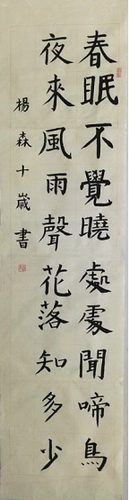 春眠不覺曉處處聞啼鳥
夜來風雨聲花落知多少
楊森十歲書